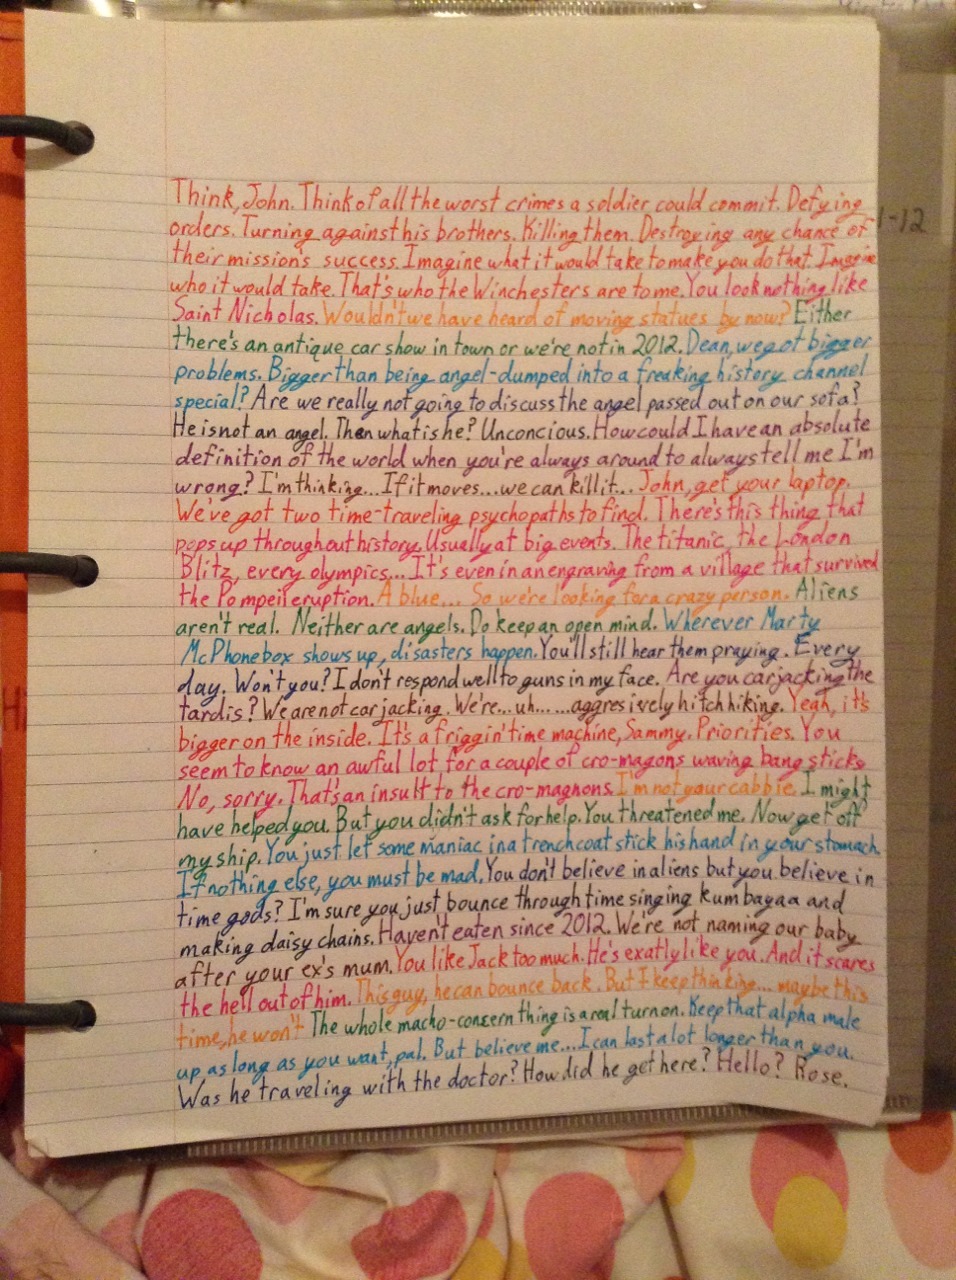 1-12
Think, John. Think of all the worst crimes a soldier could commit. Defying
orders. Turning against his brothers. Killing them. Destroying any chance of
their mission's success. Imagine what it would take to make you do that. Imagine
who it would take. That's who the Winchesters are to me. You look nothing like
Saint Nicholas. Wouldn't we have heard of moving statues by now? Either
there's an antique car show in town or we're not in 2012. Dean, we got bigger
problems. Bigger than being angel-dumped into a freaking history channel
special? Are we really not going to discuss the angel passed out on our sofa?
He is not an angel. Then what is he? Unconcious. How could I have an absolute
definition of the world when you're always around to always tell me I'm
wrong? I'm thinking... If it moves... we can kill it... John, get your laptop.
We've got two time-traveling psychopaths to find. There's this thing that
pops up throughout history. Usually at big events. The titanic, the London
Blitz, every olympics... It's even in an engraving from a village that survived
the Pompeii eruption. A blue... So we're looking for a crazy person. Aliens
aren't real. Neither are angels. Do keep an open mind. Wherever Marty
McPhonebox shows up, disasters happen. You'll still hear them praying. Every
day. Won't you? I don't respond well to guns in my face. Are you carjacking the
tardis? We are not carjacking. We're... uh... ...aggresively hitchhiking. Yeah, it's
bigger on the inside. It's a friggin' time machine, Sammy. Priorities. You
seem to know an awful lot for a couple of cro-magons waving bang sticks
No, sorry. That's an insult to the cro-magnons. I'm not your cabbie. I might
have helped you. But you didn't ask for help. You threatened me. Now get off
my ship. You just let some maniac in a trenchcoat stick his hand in your stomach.
If nothing else, you must be mad. You don't believe in aliens but you believe in
time gods? I'm sure you just bounce through time singing kumbayaa and
making daisy chains. Haven't eaten since 2012. We're not naming our baby
after your ex's mum. You like Jack too much. He's exatly like you. And it scares
the hell out of him. This guy, he can bounce back. But I keep thinking... maybe this
time, he won't. The whole macho-concern thing is a real turn on. Keep that alpha male
up as long as you want, pal. But believe me... I can last a lot longer than you.
Was he traveling with the doctor? How did he get here? Hello? Rose.